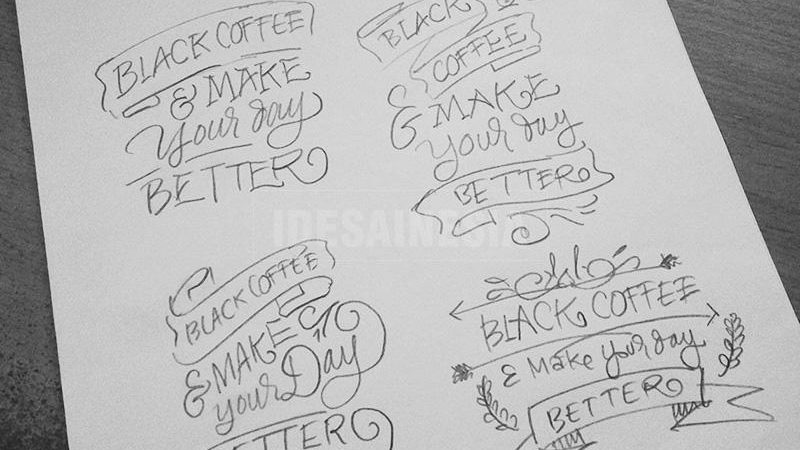 BLACK COFFEE
& MAKE
Your day
BETTER
BLACK
COFFEE
& MAKE
your day
BETTER
BLACK COFFEE
& MAKE
your Day
BETTER
BLACK COFFEE
& Make your day
BETTER
IDESAINESIA